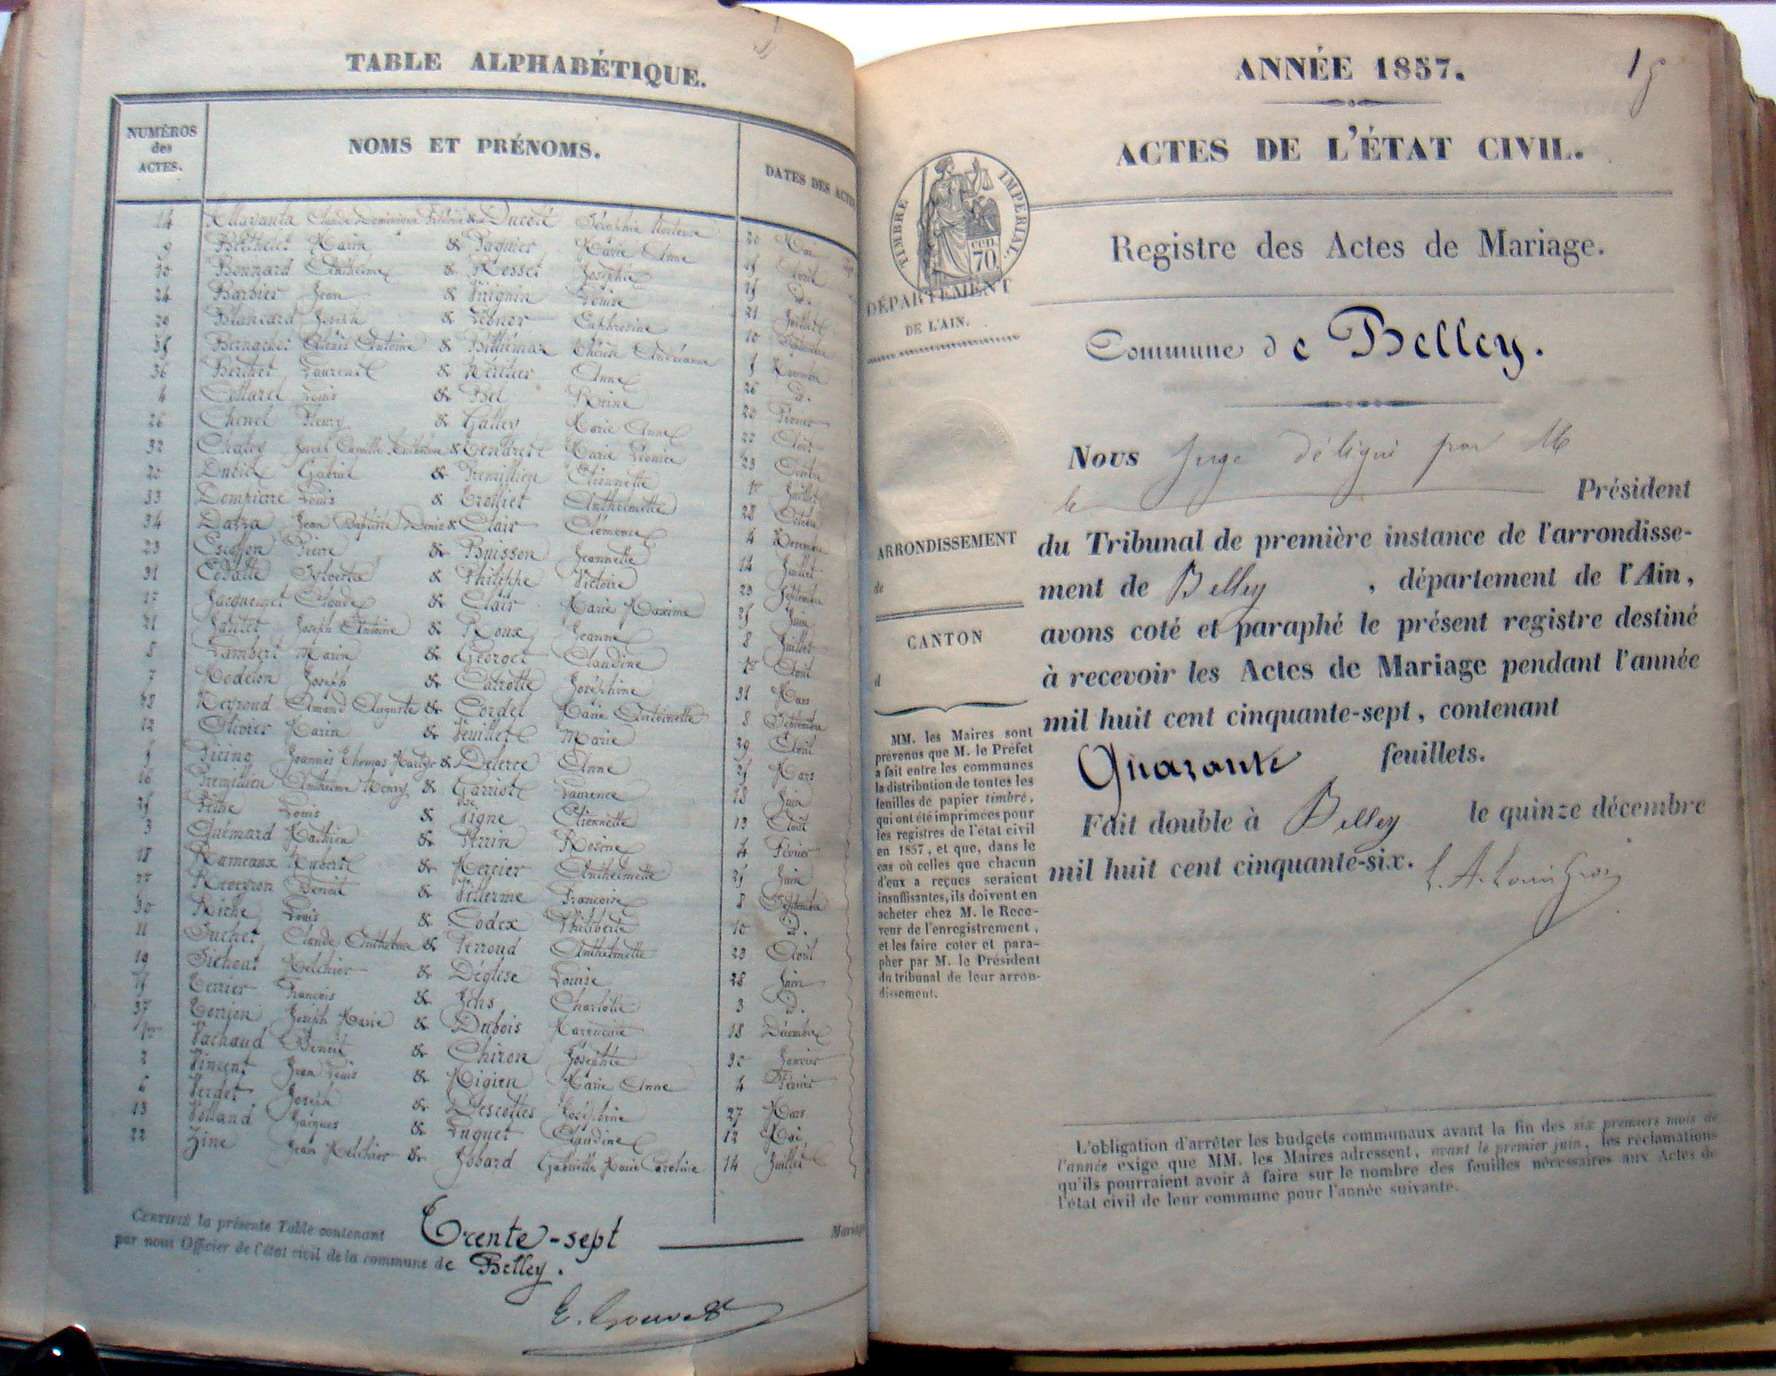 TABLE ALPHABÉTIQUE.
NUMÉROS
des
ACTES.
NOMS ET PRÉNOMS.
DATES DES ACTES
14 Claude Dominique & Ducoté Séraphie 20 Mai
9 Berthelet Marin & Paquier Marie Anne Avril
10 Bonnard Anthelme & Rosset Josephte D.
24 Barbier Jean & Louise 21 Juillet
Blanchard Joseph & Euphrosine 10 Septembre
35 Antoine & Billiémaz Novembre
36 Berthet Laurent & Anne 26 D.
4 Collarel Louis & Bel Reine 20 Février
26 Chenel Fleury & Galley Marie Anne 22 Août
32 Chaley & Marie 23 Octobre
20 Gabriel & Premillieu Etiennette Juillet
33 Dompierre Louis & Anthelmette 28 Octobre
34 Jean Baptiste Denis & Clair Clémence 4 Novembre
23 Escoffon Pierre & Buisson Jeannette 14 Juillet
31 Sylvestre & Philippe Victoire 23 Septembre
17 Jacquemet Claude & Clair Marie Maxime 25 Juin
21 Joseph Antoine & Roux Jeanne 8 Juillet
8 Lambert Marin & Georget Claudine Août
7 Modelon Joseph & Joséphine 31 Mars
Neyroud Amand Auguste & Cordel Marie Antoinette 8 Septembre
12 Olivier Marin & Feuillet Marie 29 Août
5 Picino Joannès Thomas & Delerce Anne 25 Mars
16 Premillieu Anthelme Henry & Laurence 13 Juin
25 Pithe Louis & Vigne Etiennette 13 Août
3 Quémard Mathieu & Perrin Rosine 4 Février
18 Rameaux Hubert & Mercier Anthelmette 25 Juin
Reveyron Benoit & Vellerme Françoise 8 Septembre
30 Riche Louis & Codex Philiberte 10 D.
11 Suchet Claude Anthelme & Perroud Anthelmette 23 Août
19 Sichout Melchior & Déglise Louise 28 Juin
15 Terrier François & Charlotte 3 D.
37 Torrion Joseph Marie & Dubois 18 Décembre
1er Vachaud Benoit & Chiron Josephte 30 Janvier
2 Vincent Jean Louis & Migieu Marie Anne 4 Février
6 Verdet Joseph & Descottes Joséphine 27 Mars
13 Volland Jacques & Luquet Claudine 12 Mai
22 Zine Jean Melchior & Jobard Gabrielle Marie Caroline 14 Juillet
CERTIFIÉ la présente Table contenant Trente-sept Mariages
par nous Officier de l'état civil de la commune de Belley.
ANNÉE 1857.
ACTES DE L'ÉTAT CIVIL.
TIMBRE IMPÉRIAL.
70
DÉPARTEMENT
DE L'AIN.
Registre des Actes de Mariage.
Commune de Belley.
Nous Juge délégué par M
le Président
du Tribunal de première instance de l'arrondisse-
ment de Belley, département de l'Ain,
avons coté et paraphé le présent registre destiné
à recevoir les Actes de Mariage pendant l'année
mil huit cent cinquante-sept, contenant
Quarante feuillets.
Fait double à Belley le quinze décembre
mil huit cent cinquante-six.
ARRONDISSEMENT
de
CANTON
d
MM. les Maires sont
prévenus que M. le Préfet
a fait entre les communes
la distribution de toutes les
feuilles de papier timbré,
qui ont été imprimées pour
les registres de l'état civil
en 1857, et que, dans le
cas où celles que chacun
d'eux a reçues seraient
insuffisantes, ils doivent en
acheter chez M. le Rece-
veur de l'enregistrement,
et les faire coter et para-
pher par M. le Président
du tribunal de leur arron-
dissement.
L'obligation d'arrêter les budgets communaux avant la fin des six premiers mois de
l'année exige que MM. les Maires adressent, avant le premier juin, les réclamations
qu'ils pourraient avoir à faire sur le nombre des feuilles nécessaires aux Actes de
l'état civil de leur commune pour l'année suivante.